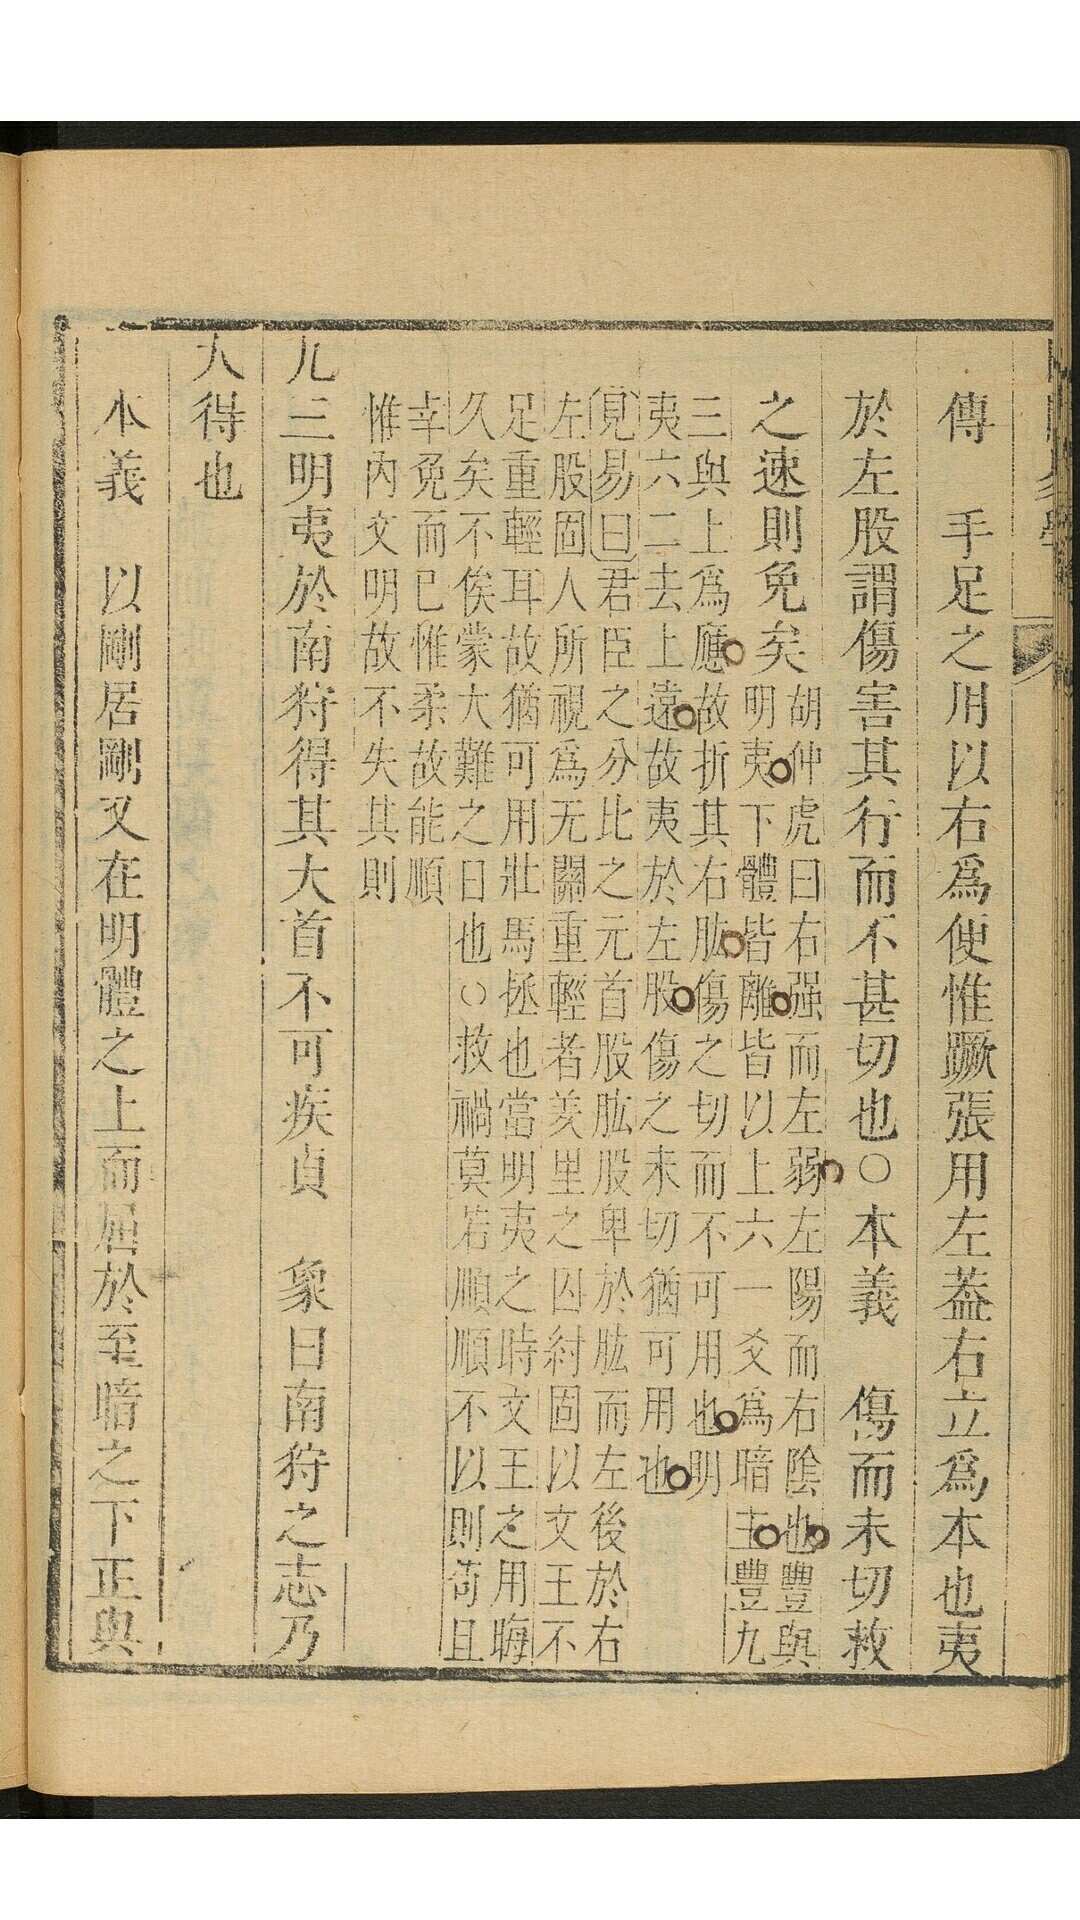 傳　手足之用以右爲便惟蹶張用左蓋右立爲本也夷
於左股謂傷害其行而不甚切也○本義　傷而未切救
之速則免矣
胡仲虎曰右强而左弱左陽而右陰也豐與
明夷下體皆離皆以上六一爻爲暗主豐九
三與上爲應故折其右肱傷之切而不可用也明
夷六二去上遠故夷於左股傷之未切猶可用也
見易曰君臣之分比之元首股肱股卑於肱而左後於右
左股固人所視爲无關重輕者羑里之囚紂固以文王不
足重輕耳故猶可用壯馬拯也當明夷之時文王之用晦
久矣不俟蒙大難之日也○救禍莫若順順不以則苟且
幸免而已惟柔故能順
惟內文明故不失其則
九三明夷於南狩得其大首不可疾貞　象曰南狩之志乃
大得也
本義　以剛居剛又在明體之上而屈於至暗之下正與